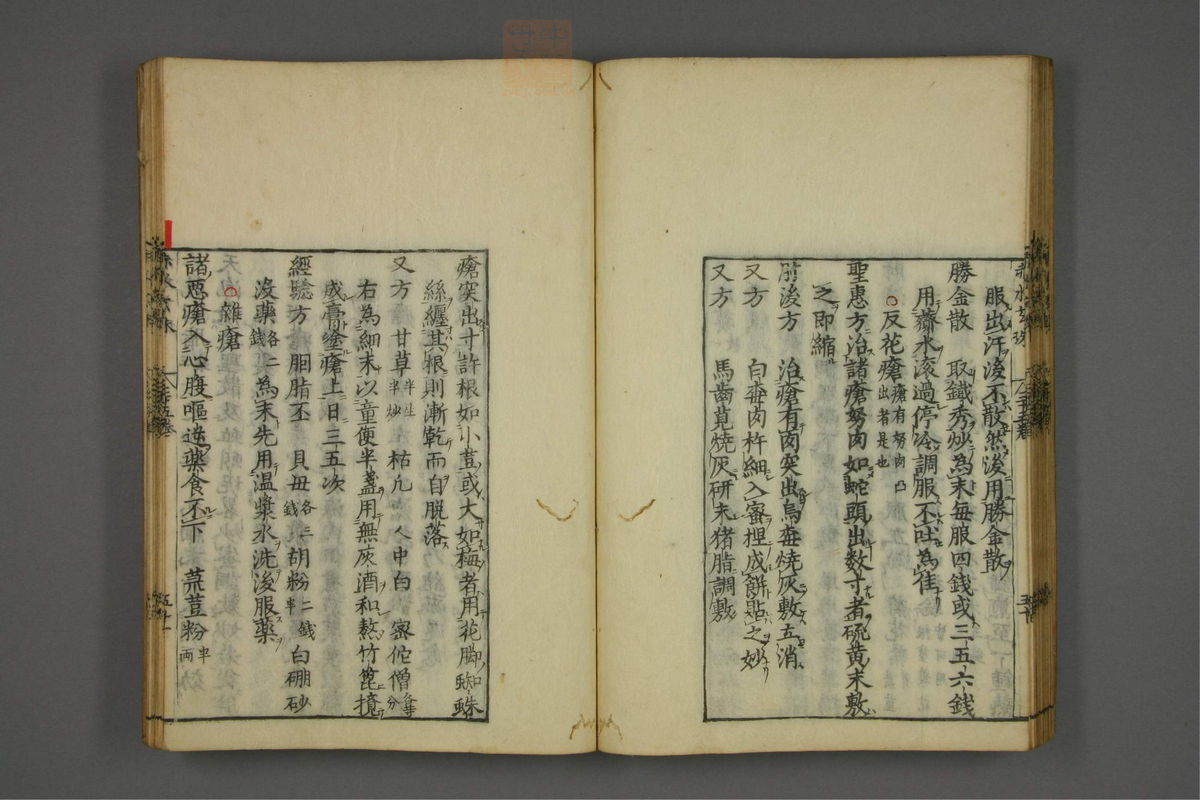 服出汗後不散然後用勝金散
勝金散 取鐵秀炒為末每服四錢或三五六錢
用虀水滾過停冷調服不吐為隹
反花瘡瘡有努肉凸出者是也
聖惠方治諸瘡努肉如蛇頭出数寸者硫黄末敷
之即縮
前後方 治瘡有肉突出烏梅燒灰敷立消
又方 白梅肉杵細入蜜捏成餅貼之妙
又方 馬齒莧燒灰研末猪脂調敷
瘡突出寸許根如小荳或大如梅者用花脚蜘蛛
絲纏其根則漸乾而自脱落
又方 甘草半生半炒 枯凡 人中白 宻佗僧各等分
右為細末以童便半盞用無灰酒和熬竹篦攪
成膏塗瘡上日三五次
經驗方 胭脂坯 貝母各三錢胡粉二錢半白硼砂
没藥各二錢為末先用温漿水洗後服藥
雜瘡
諸惡瘡入心腹嘔逆藥食不下 菉荳粉半両